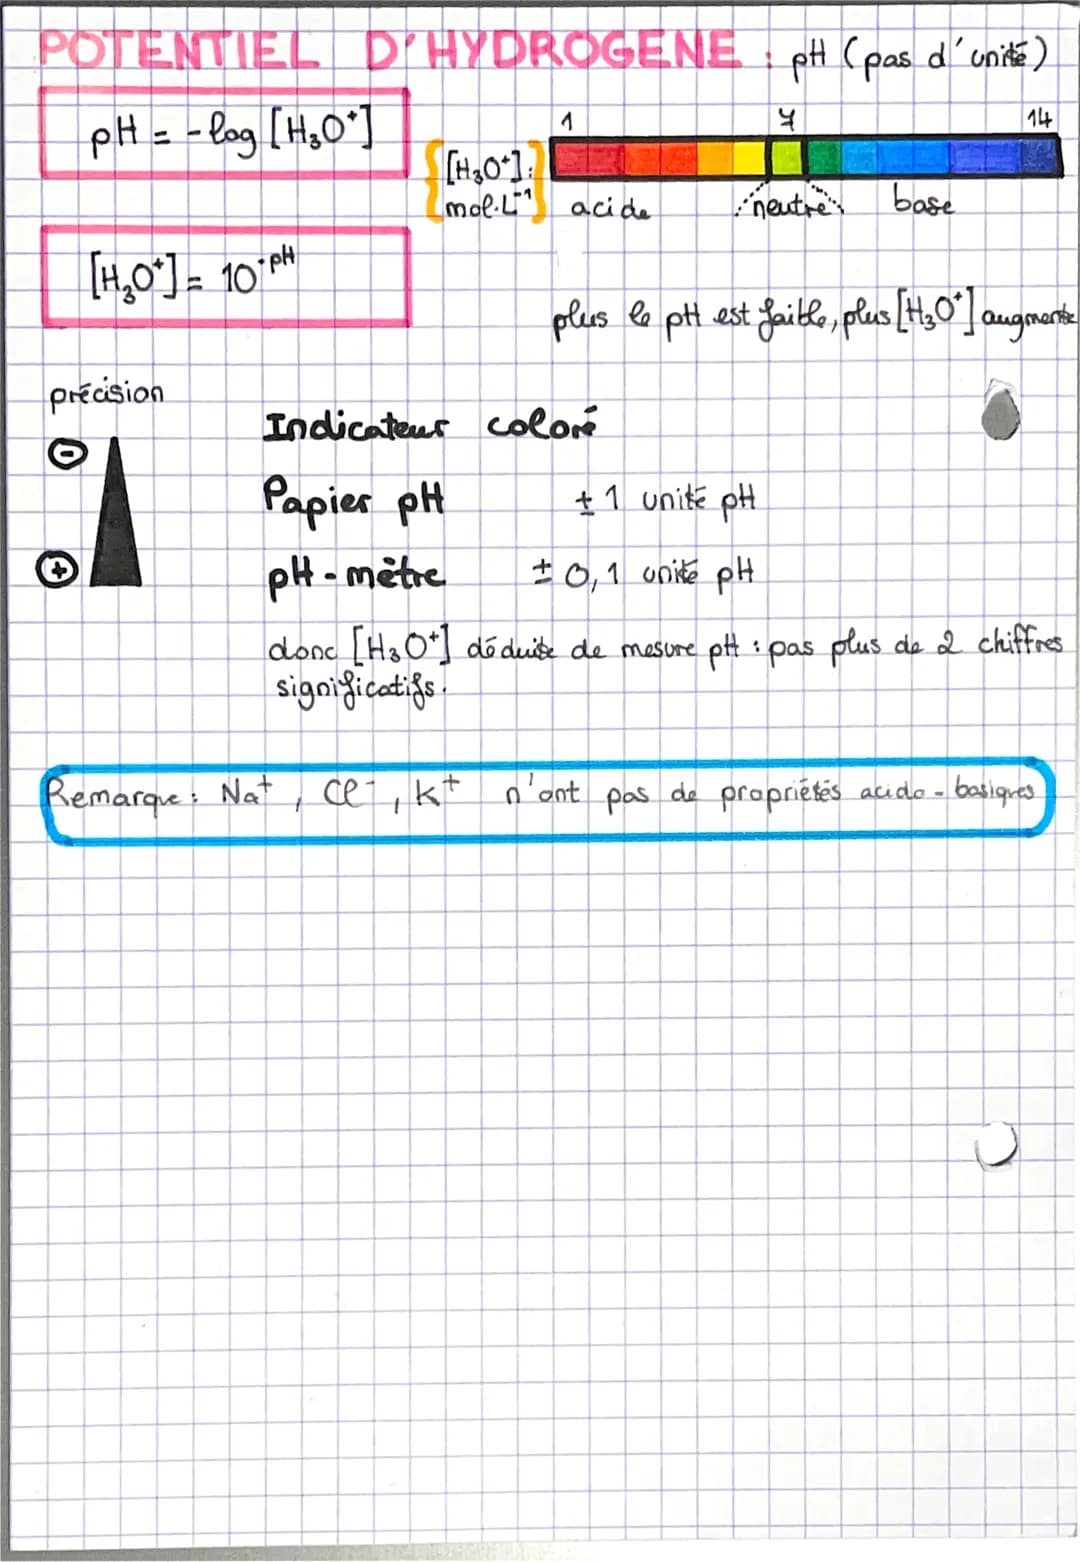 POTENTIEL D'HYDROGENE : pH (pas d'unité)
pH = -log [H₃O⁺]
{[H₃O⁺]:
mol.L⁻¹}
1 7 14
acide neutre base
[H₃O⁺] = 10⁻ᵖᴴ
plus le pH est faible, plus [H₃O⁺] augmente
précision
Indicateur coloré
⊖
Papier pH ± 1 unité pH
⊕
pH-mètre ± 0,1 unité pH
donc [H₃O⁺] déduite de mesure pH : pas plus de 2 chiffres
significatifs.
Remarque : Na⁺, Cl⁻, K⁺ n'ont pas de propriétés acido-basiques